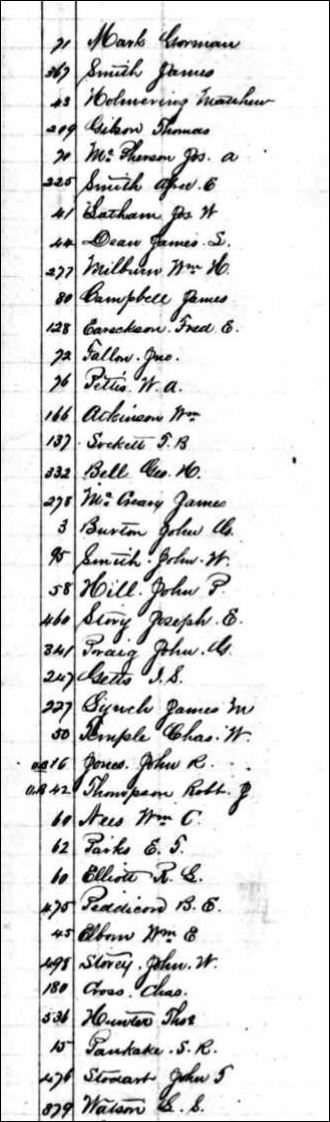 71 Mark Gorman
267 Smith James
43 Holmering Matthew
209 Gibson Thomas
70 Mc Pherson Jos. A
225 Smith Apr. E
41 Latham Jos W
44 Dean James. S.
277 Milburn Wm H.
80 Campbell James
128 Eareckson. Fred E.
72 Fallon. Jno.
76 Pettis W. A.
166 Atkinson Wm
137 Sockett T. B
332 Bell Geo. H.
278 Mc Creary James
3 Burton John G.
95 Smith. John. W.
58 Hill. John P.
460 Story Joseph. E.
341 Craig John. G.
247 Getts I. S.
227 Lynch James M
50 Temple Chas. W.
76 Jones. John R.
42 Thompson Robt. J
60 Nees Wm C.
62 Parks E. T.
60 Elliott R. L.
475 Peddicord B. E.
45 Elborn Wm E
498 Storey. John. W.
180 Cross. Chas.
536 Hunter Thos
15 Pankake. S. R.
476 Stodart John T
379 Watson L. S.